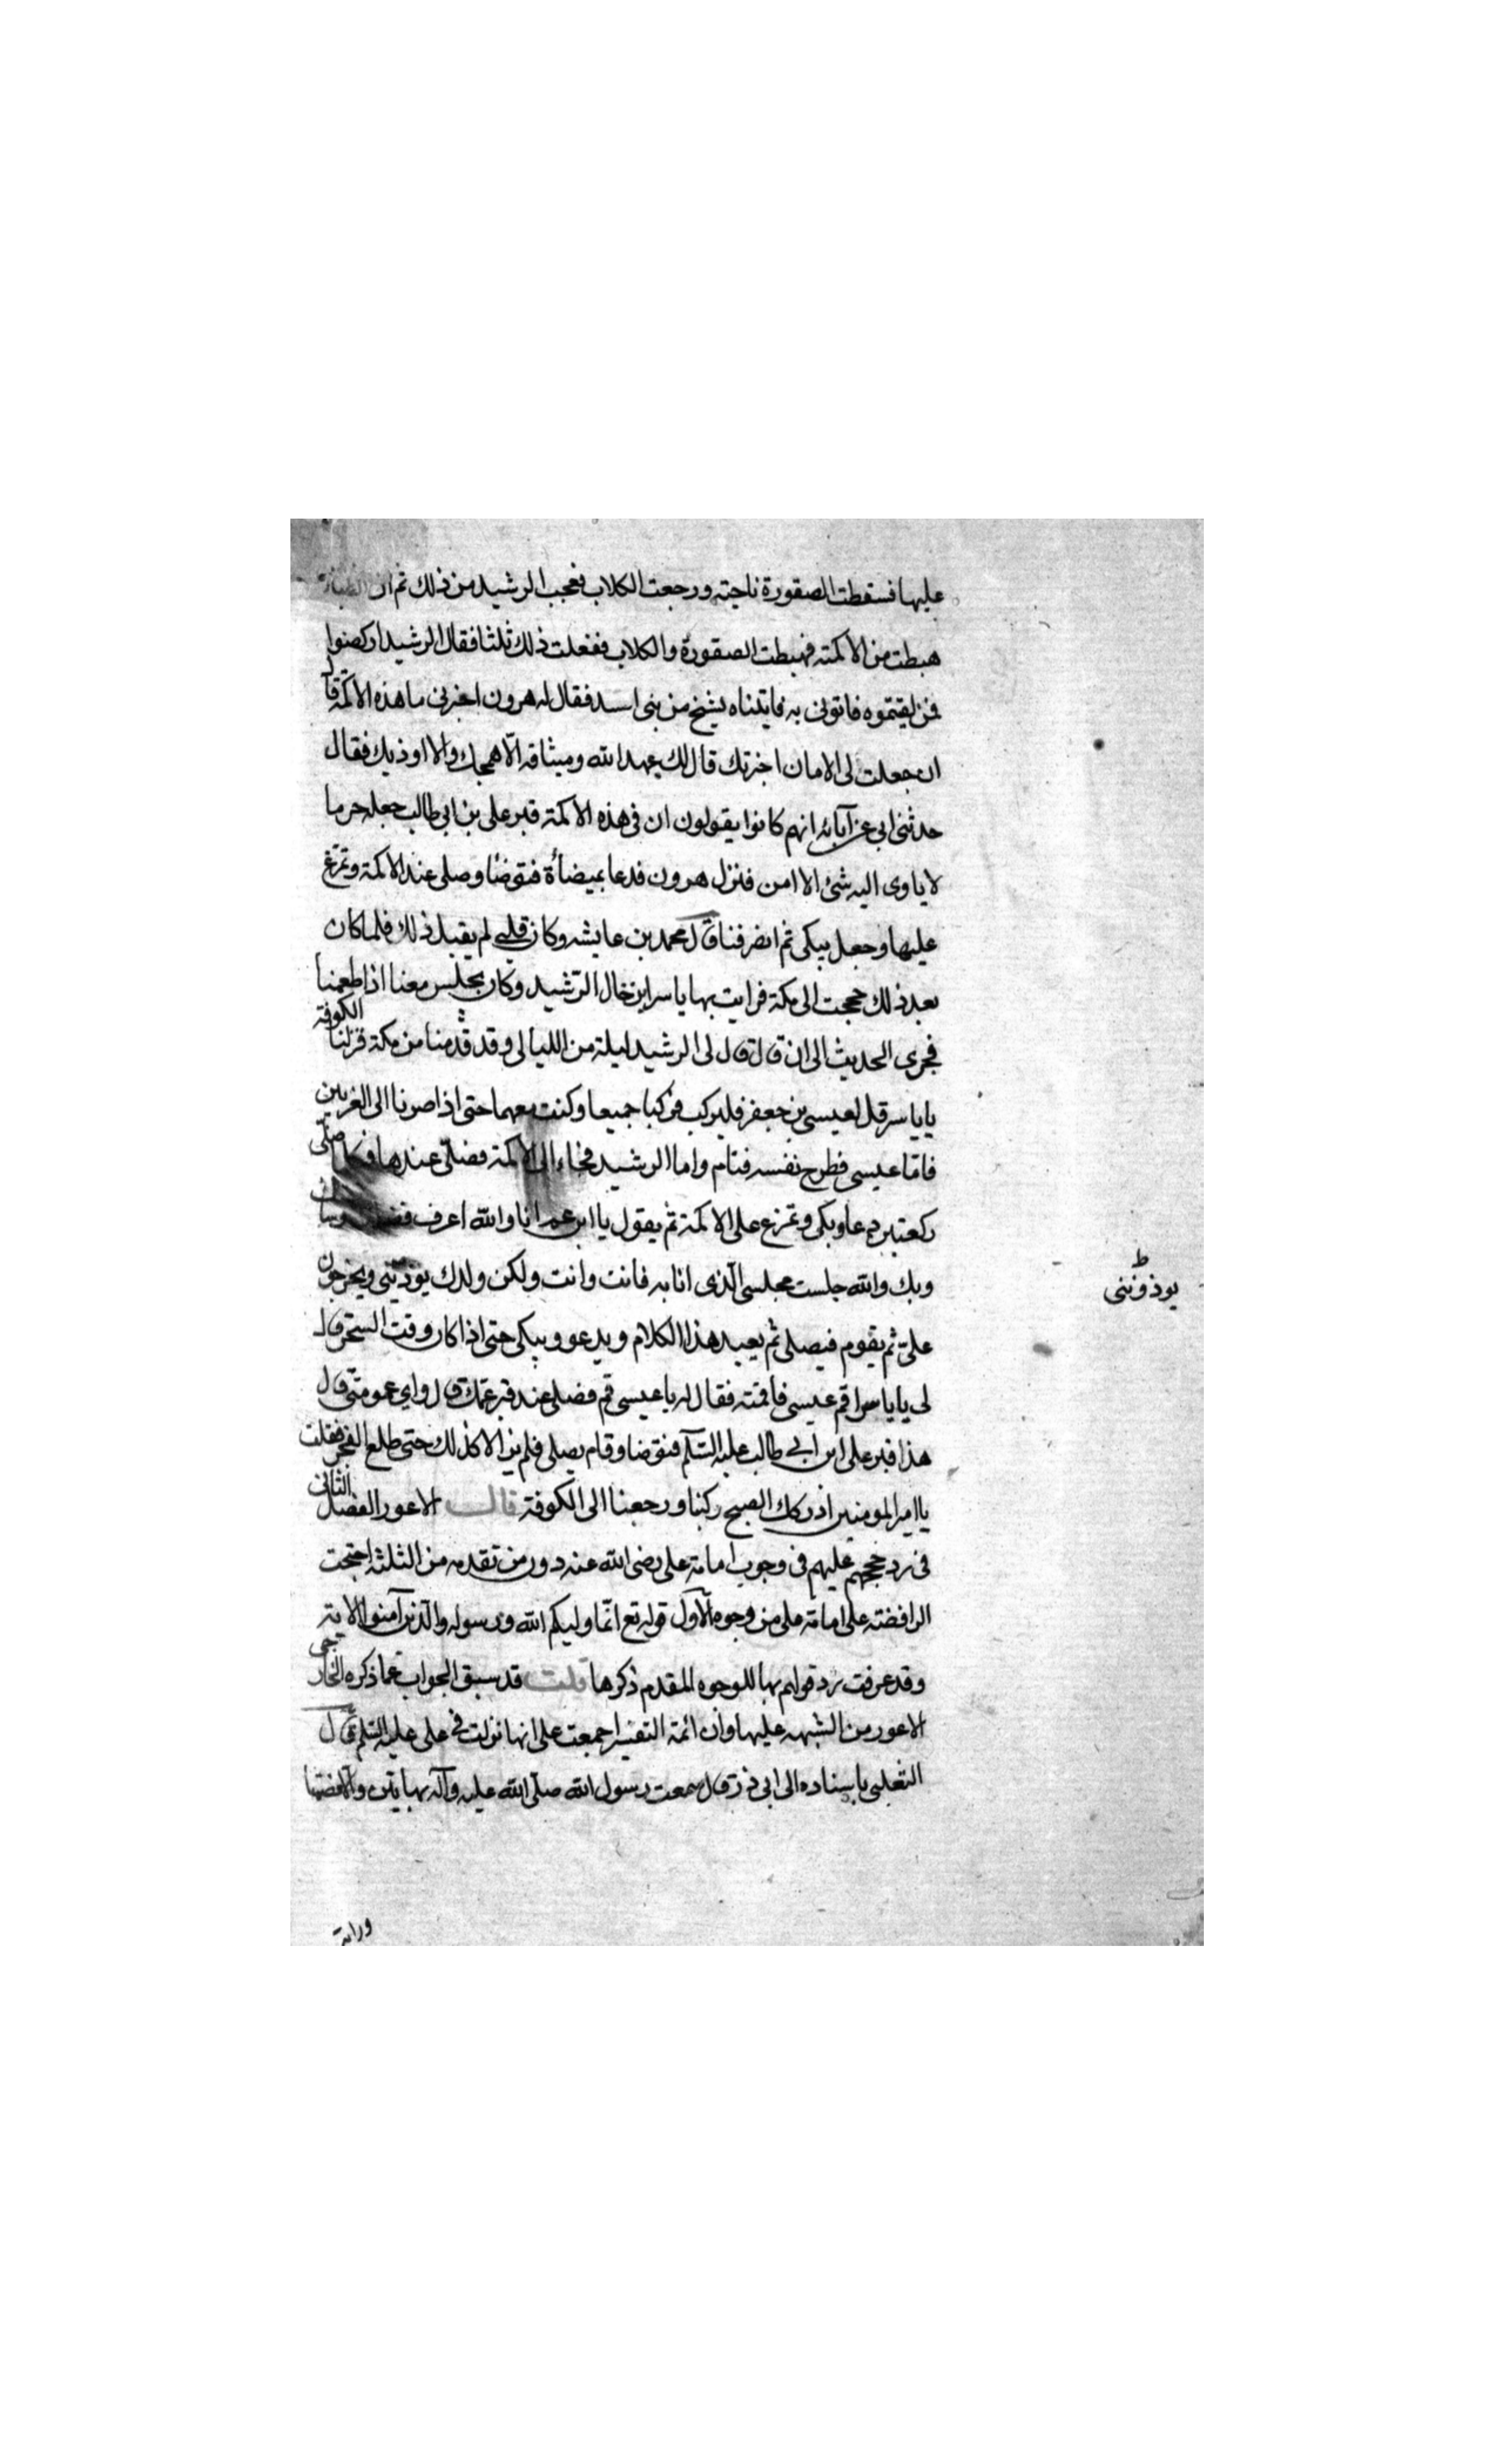 عليها فسقطت الصقورة ناحية ورجعت الكلاب فعجب الرشيد من ذلك ثم ان الظباء
هبطت من الاكمة فهبطت الصقورة والكلاب ففعلت ذلك ثلثا فقال الرشيد اركضوا
فمن لقيتموه فاتونى به فاتيناه بشيخ من بنى اسد فقال له هرون اخبرنى ما هذه الاكمة قال
ان جعلت لى الامان اخبرتك قال لك عهد الله وميثاقه الا اهيجك والا اوذيك فقال
حدثنى ابى عن آبائه انهم كانوا يقولون ان فى هذه الاكمة قبر على بن ابى طالب جعله حرما
لا ياوى اليه شئ الا امن فنزل هرون فدعا بميضأة فتوضأ وصلى عند الاكمة وتمرغ
عليها وجعل يبكى ثم انصرفنا قال محمد بن عايشه وكان قلبى لم يقبل ذلك فلما كان
بعد ذلك حججت الى مكة فرايت بها ياسر ابن خال الرشيد وكان يجلس معنا اذا طعمنا
فجرى الحديث الى ان قال قال لى الرشيد ليلة من الليالى وقد قدمنا من مكة فنزلنا الكوفة
يا ياسر قل لعيسى بن جعفر فليركب فركبا جميعا وكنت معهما حتى اذا صرنا الى الغريين
فاما عيسى فطرح نفسه فنام واما الرشيد فجاء الى الاكمة فصلى عندها فكلما صلى
ركعتين دعا وبكى وتمرغ على الاكمة ثم يقول يا ابن عم انا والله اعرف
وبك والله جلست مجلسى الذى انا به فانت وانت ولكن ولدك يوذيننى ويخرجون
على ثم يقوم فيصلى ثم يعيد هذا الكلام ويدعو ويبكى حتى اذا كان وقت السحر قال
لى يا ياسر اقم عيسى فاقمته فقال له يا عيسى قم فصلى عند قبر عمك قال واى عمومتى قال
هذا قبر على ابن ابى طالب عليه السلم فتوضا وقام يصلى فلم يزالا كذلك حتى طلع الفجر فقلت
يا امير المومنين ادركك الصبح ركبنا ورجعنا الى الكوفة قال الاعور الفصل الثانى
فى رد حججهم عليهم فى وجوب امامة على رضى الله عنه دون من تقدمه من الثلثة احتجت
الرافضة على امامة على من وجوه الاول قوله تع انما وليكم الله ورسوله والذين آمنوا الاية
وقد عرفت رد قولهم بها للوجوه المقدم ذكرها قلت قد سبق الجواب عما ذكره الخارجى
الاعور من الشبهه عليها وان ائمة التفسير اجمعت على انها نزلت فى على عليه السلم قال
الثعلبى باسناده الى ابى ذر قال سمعت رسول الله صلى الله عليه وآله بهاتين والا فصمتا
ورايته
ط
يوذوننى